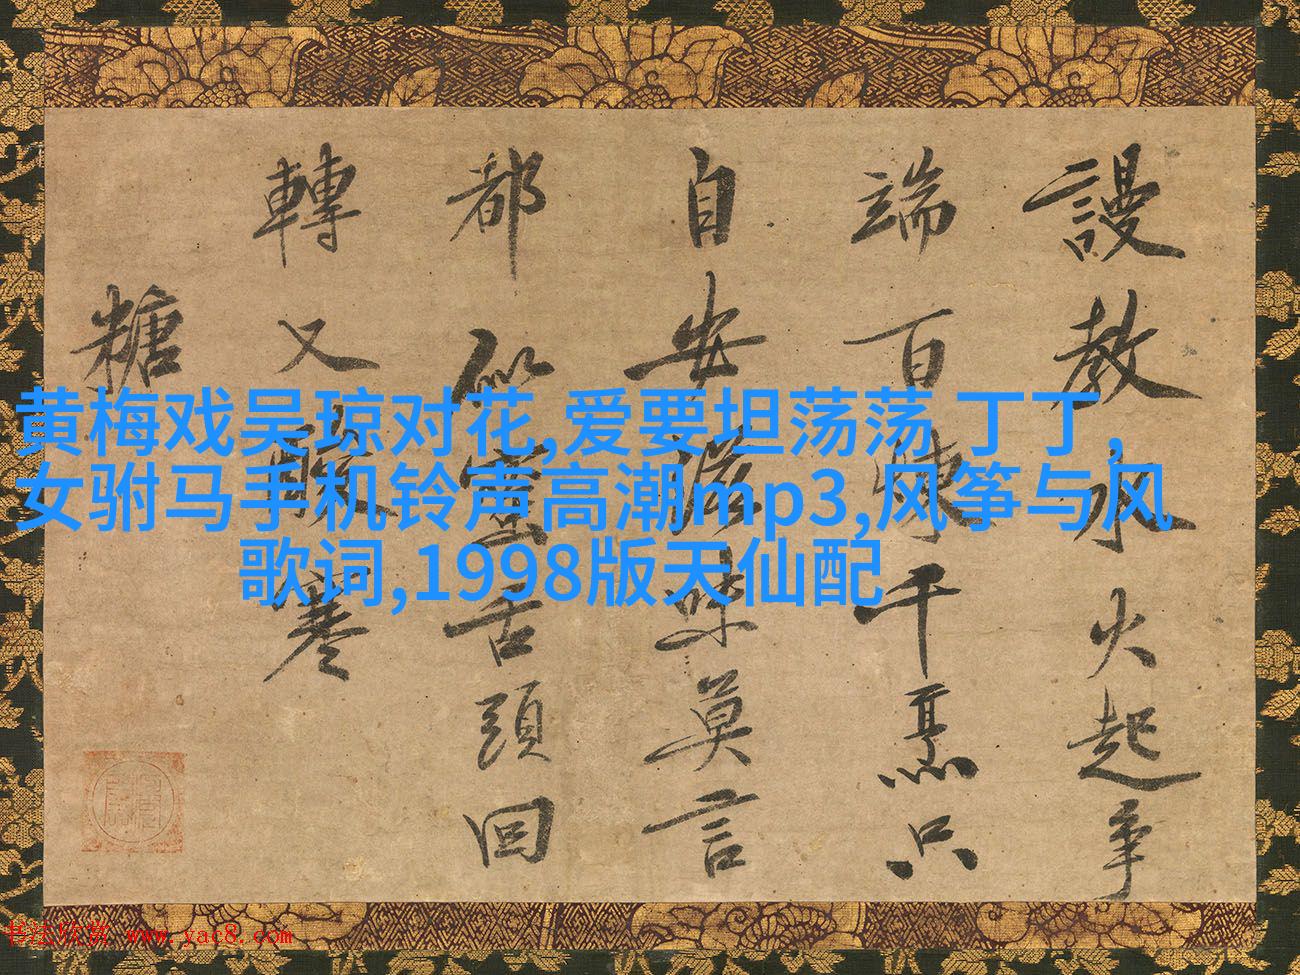 謾教水火起爭
端百煉千熏只
自安滋味莫言
都似蜜舌頭回
轉又酸寒
糖
黄梅戏吴琼对花,爱要坦荡荡 丁丁,
女驸马手机铃声高潮mp3,风筝与风
歌词,1998版天仙配
书法欣赏 www.yac8.com